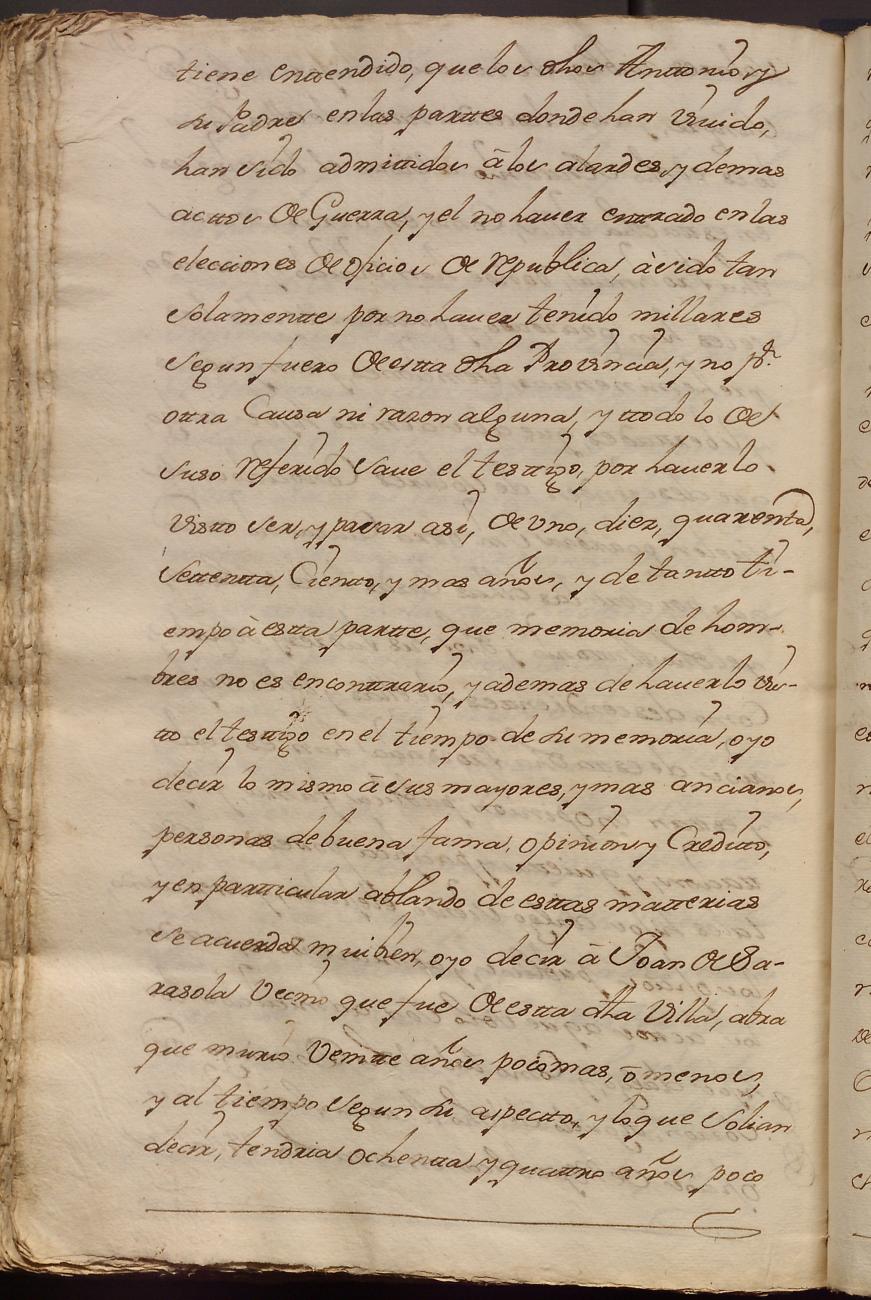 tiene enttendido, que los dhos Anttonio, y
su Padre en las parttes donde han viuido,
han sido admittidos â los alardes, y demas
acttos de Guerra, y el no hauer enttrado en las
elecciones de oficios de republica, à sido tan
solamentte por no hauer tenido millares
segun fuero de estta dha Provincia, y no pr.
ottra Causa ni razon alguna, y ttodo lo de
suso referido saue el testtigo, por hauerlo
visto ser, y pasar asi, de vno, diez, quarenta,
settentta, Cientto, y mas años, y de tantto ti-
empo à estta partte, que memoria de hom-
bres no es enconttrario, y ademas de hauerlo vis-
tto el testtigo en el tiempo de su memoria, oyo
decir lo mismo â sus mayores, y mas ancianos,
personas de buena fama, opinion y Creditto,
y en partticular ablando de esttas matterias
se acuerda mui bien, oyo decir â Joan de Sa-
rasola Vecino que fue de estta dha Villa, abra
que murio Veintte años poco mas, ô menos,
y al tiempo segun su aspectto, y lo que solian
decir, tendria ochentta y quattro años poco